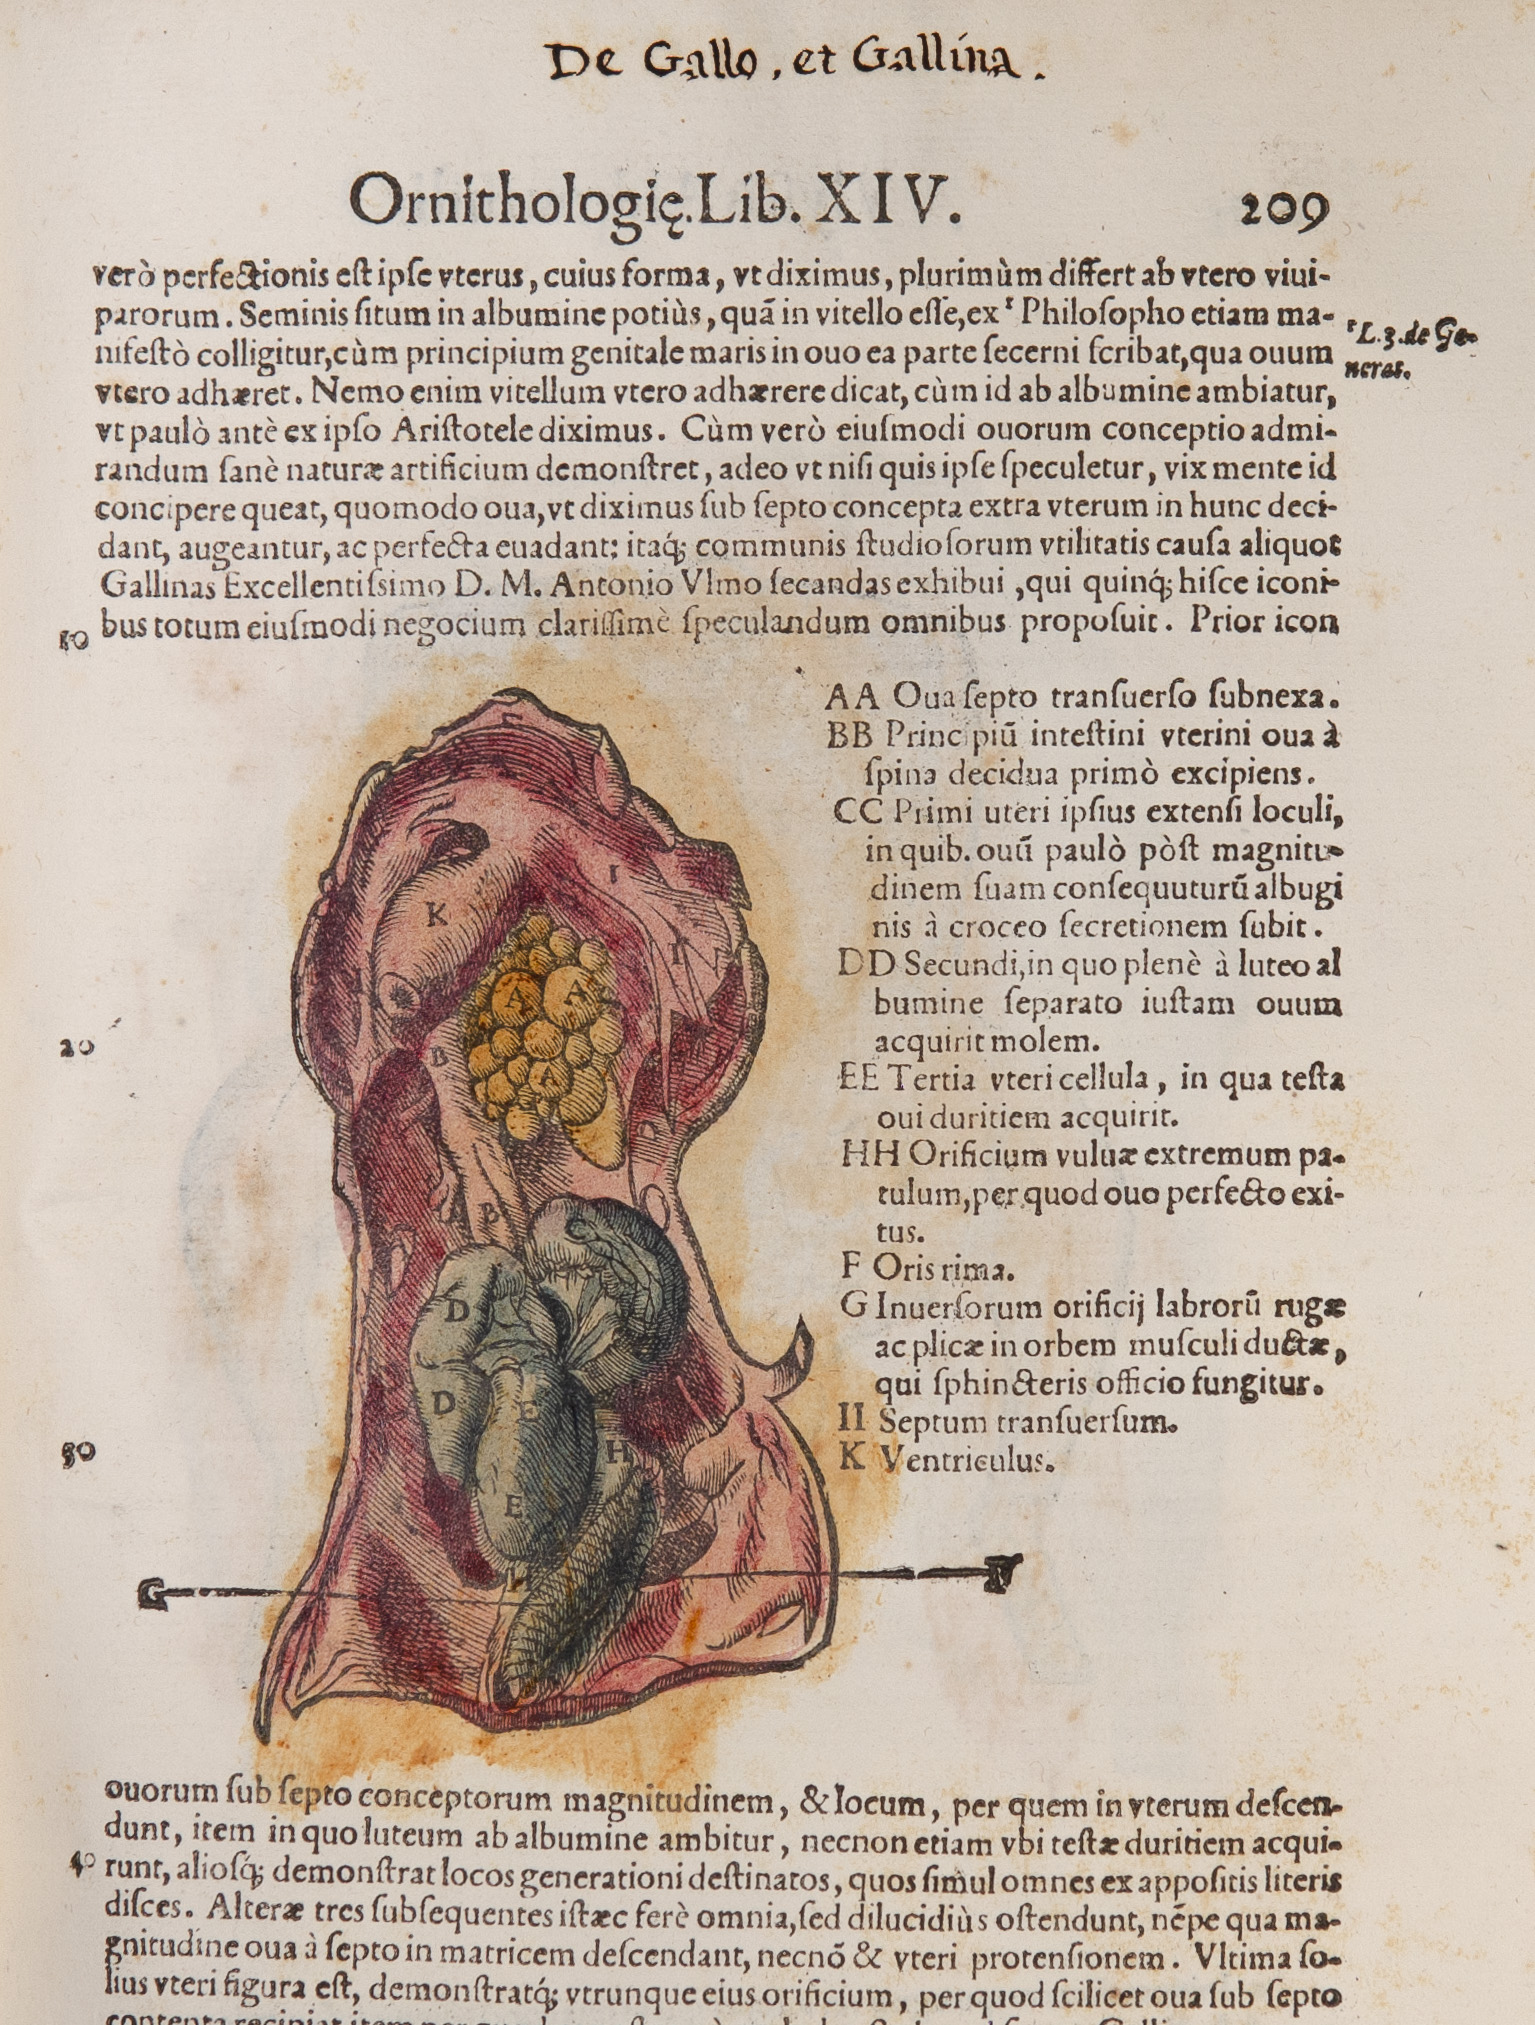 De Gallo, et Gallina.
Ornithologię. Lib. XIV. 209
verò perfectionis est ipse vterus, cuius forma, vt diximus, plurimùm differt ab vtero viui-
parorum. Seminis situm in albumine potiùs, quã in vitello esse, ex ʳ Philosopho etiam ma-
ʳ L.3.de Ge-
nifestò colligitur, cùm principium genitale maris in ouo ea parte secerni scribat, qua ouum
nerat.
vtero adhæret. Nemo enim vitellum vtero adhærere dicat, cùm id ab albumine ambiatur,
vt paulò antè ex ipso Aristotele diximus. Cùm verò eiusmodi ouorum conceptio admi-
randum sanè naturæ artificium demonstret, adeo vt nisi quis ipse speculetur, vix mente id
concipere queat, quomodo oua, vt diximus sub septo concepta extra vterum in hunc deci-
dant, augeantur, ac perfecta euadant: itaq́; communis studiosorum vtilitatis causa aliquot
Gallinas Excellentissimo D. M. Antonio Vlmo secandas exhibui, qui quinq́; hisce iconi-
10 bus totum eiusmodi negocium clarissimè speculandum omnibus proposuit. Prior icon
AA Oua septo transuerso subnexa.
BB Principiũ intestini vterini oua à
spina decidua primò excipiens.
CC Primi uteri ipsius extensi loculi,
in quib. ouũ paulò pòst magnitu-
dinem suam consequuturũ albugi
nis à croceo secretionem subit.
DD Secundi, in quo plenè à luteo al
bumine separato iustam ouum
20
acquirit molem.
EE Tertia vteri cellula, in qua testa
oui duritiem acquirit.
HH Orificium vuluæ extremum pa-
tulum, per quod ouo perfecto exi-
tus.
F Oris rima.
G Inuersorum orificij labrorũ rugæ
ac plicæ in orbem musculi ductæ,
qui sphincteris officio fungitur.
II Septum transuersum.
30
K Ventriculus.
I
K
I
A A
B
A
B
D
D E
H
E
H
G F
ouorum sub septo conceptorum magnitudinem, & locum, per quem in vterum descen-
dunt, item in quo luteum ab albumine ambitur, necnon etiam vbi testæ duritiem acqui-
40 runt, aliosq́; demonstrat locos generationi destinatos, quos simul omnes ex appositis literis
disces. Alteræ tres subsequentes istæc ferè omnia, sed dilucidiùs ostendunt, nẽpe qua ma-
gnitudine oua à septo in matricem descendant, necnõ & vteri protensionem. Vltima so-
lius vteri figura est, demonstratq́; vtrunque eius orificium, per quod scilicet oua sub septo